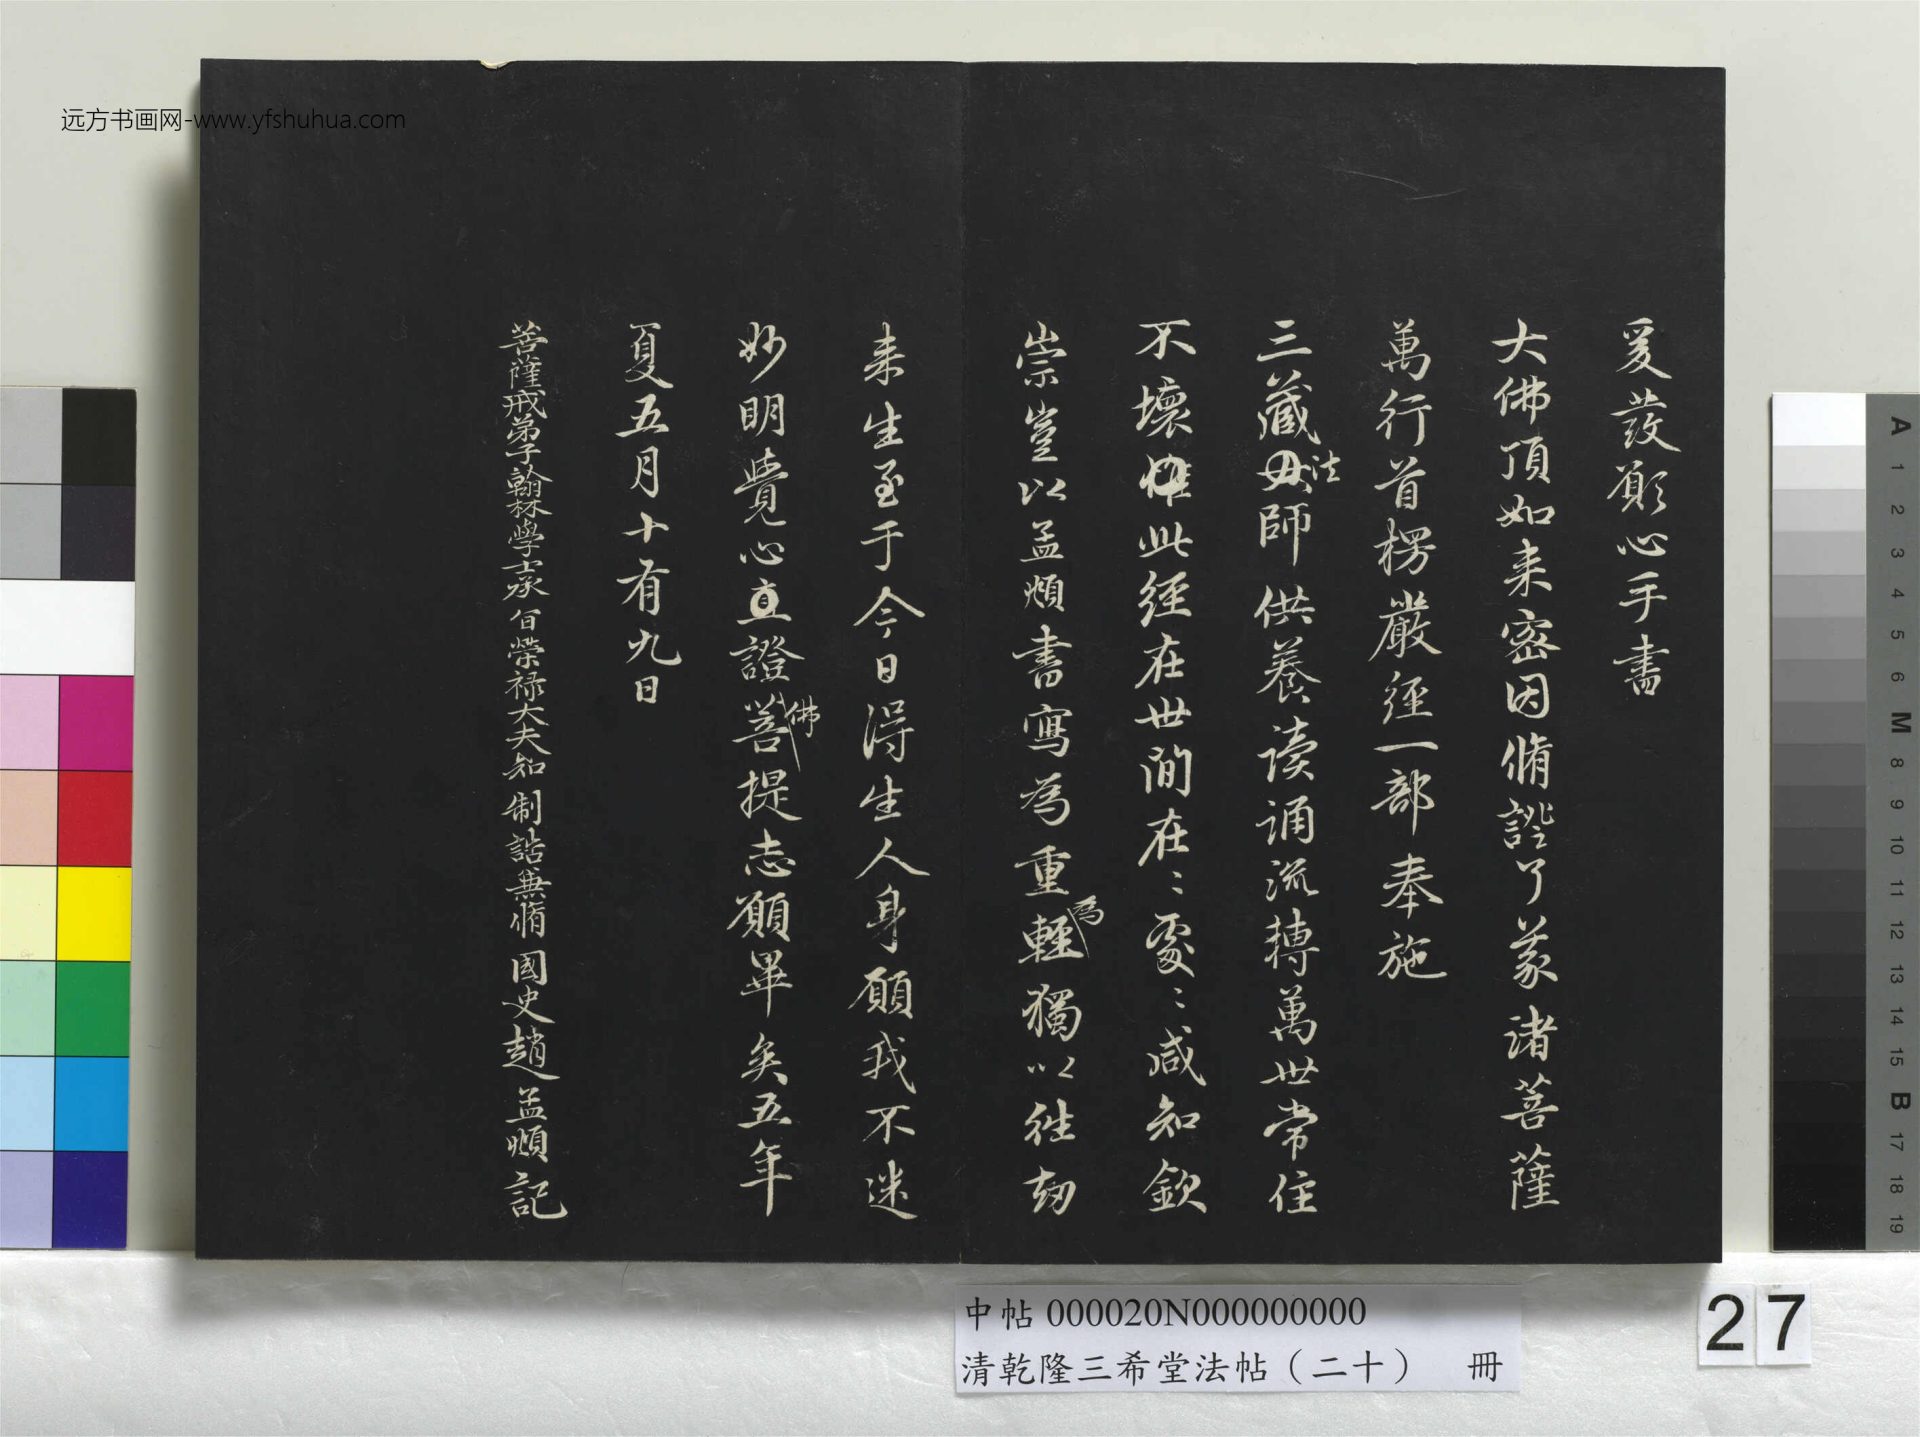 爰發願心手書
大佛頂如来密因脩證了義諸菩薩
萬行首楞嚴經一部奉施
三藏法師供養讀誦流轉萬世常住
不壞惟此經在世間在〻處〻咸知欽
崇豈以孟頫書寫為重為輕獨以往劫
来生至于今日得生人身願我不迷
妙明覺心直證佛菩提志願畢矣五年
夏五月十有九日
菩薩戒弟子翰林學士承旨榮禄大夫知制誥兼脩國史趙孟頫記
远方书画网-www.yfshuhua.com
中帖 000020N000000000
清乾隆三希堂法帖（二十） 冊
27
A 1 2 3 4 5 6 M 8 9 10 11 12 13 14 15 B 17 18 19